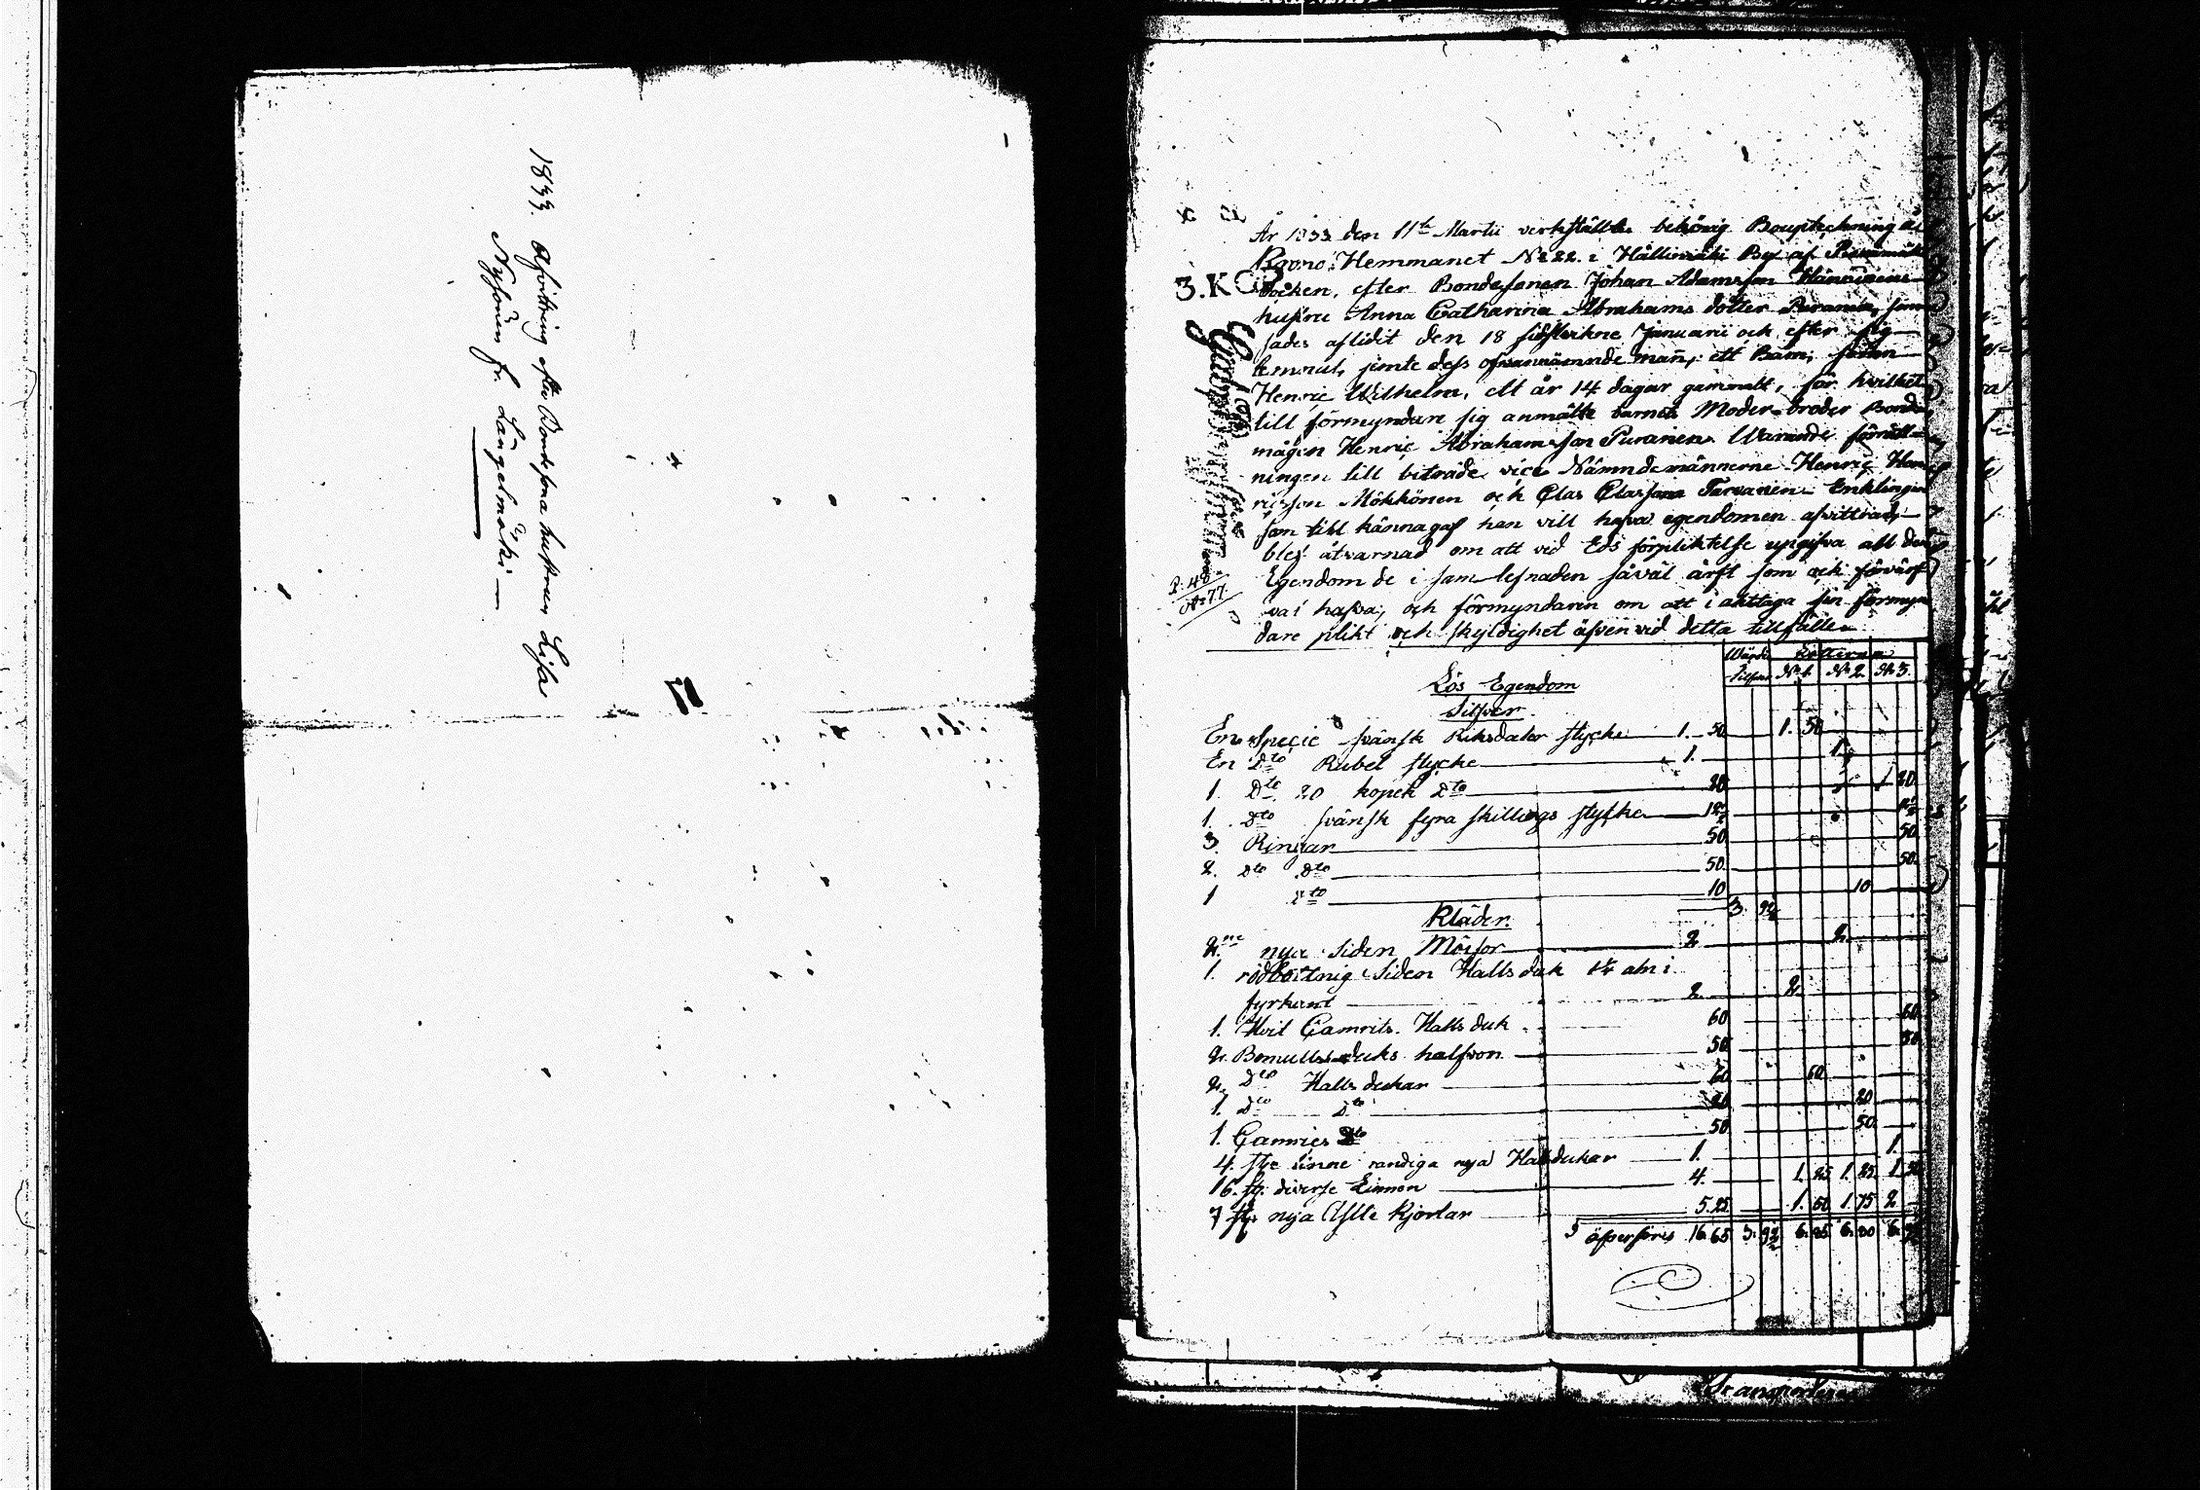 1833. Afvittring efter Bondesona hustrun Lisa
Nyssönen fr. Längelmäki
År 1833 den 11te Martii verkställtes behörig Bouptekning å
Krono Hemmanet No 22. i Hällinmäki By af
3.K Socken, efter Bondesonen Johan Adamsson
hustru Anna Catharina Abrahams dotter Puranen, som
sades aflidit den 18 sidstleðne Januarii och efter sig
lemnat, jemte dess ofvannämnde man, ett Barn, sonen
Henric Wilhelm, ett år 14 dagar gammalt, för hvilket
till förmyndare sig anmälte barnets Moder-broder Bonde
mågen Henric Abrahamsson Puranen. Warande förrätt-
ningen till biträde vice Nämndemännerne Henric Hen
ricsson Mökkönen och Clas Classon Tarvainen. Enklingen
som till känna gaf han vill hafva egendomen afvittrad,
blef åtvarnad om att vid Eds förpliktelse uppgifva all den
Egendom de i sam lefnaden såväl ärft som och förvärf
vat hafva, och förmyndaren om att i akttaga sin förmyn
dare plikt och skyldighet äfven vid detta tillfälle.
Wärde Lotterna
Silfver No 1. No 2. No 3.
Lös Egendom
Silfver.
En Specie svänsk Riksdaler stycke 1. 50 1. 50
En Dto Rubel stycke 1. 1.
1. Dto 20 kopek Dto 20 20
1. Dto svänsk fyra skillings stycke 12½
3. Ringar 50 50
2. Dto Dto 50 50
1 Dto 10 10
3 92½
Kläder.
2ne nya Siden Mössor 2 2
1. rödbottnig Siden Halls duk 1¼ aln i
fyrkant 2 2
1. Hvit Camrits Halls duk 60 60
2. Bomulls duks halfvon 50 50
2. Dto Halls dukar 60 60
1. Dto Dto 20 20
1. Camrics Dto 50 50
4. st:e linne randiga nya Halsdukar 1. 1.
16. st. diverse Linnen 4. 1. 25 1. 25 1. 50
7 st nya Kjortlar 5.25 1. 50 1. 75 2
öfverföres 16.65 3. 92½ 6. 85 6. 80